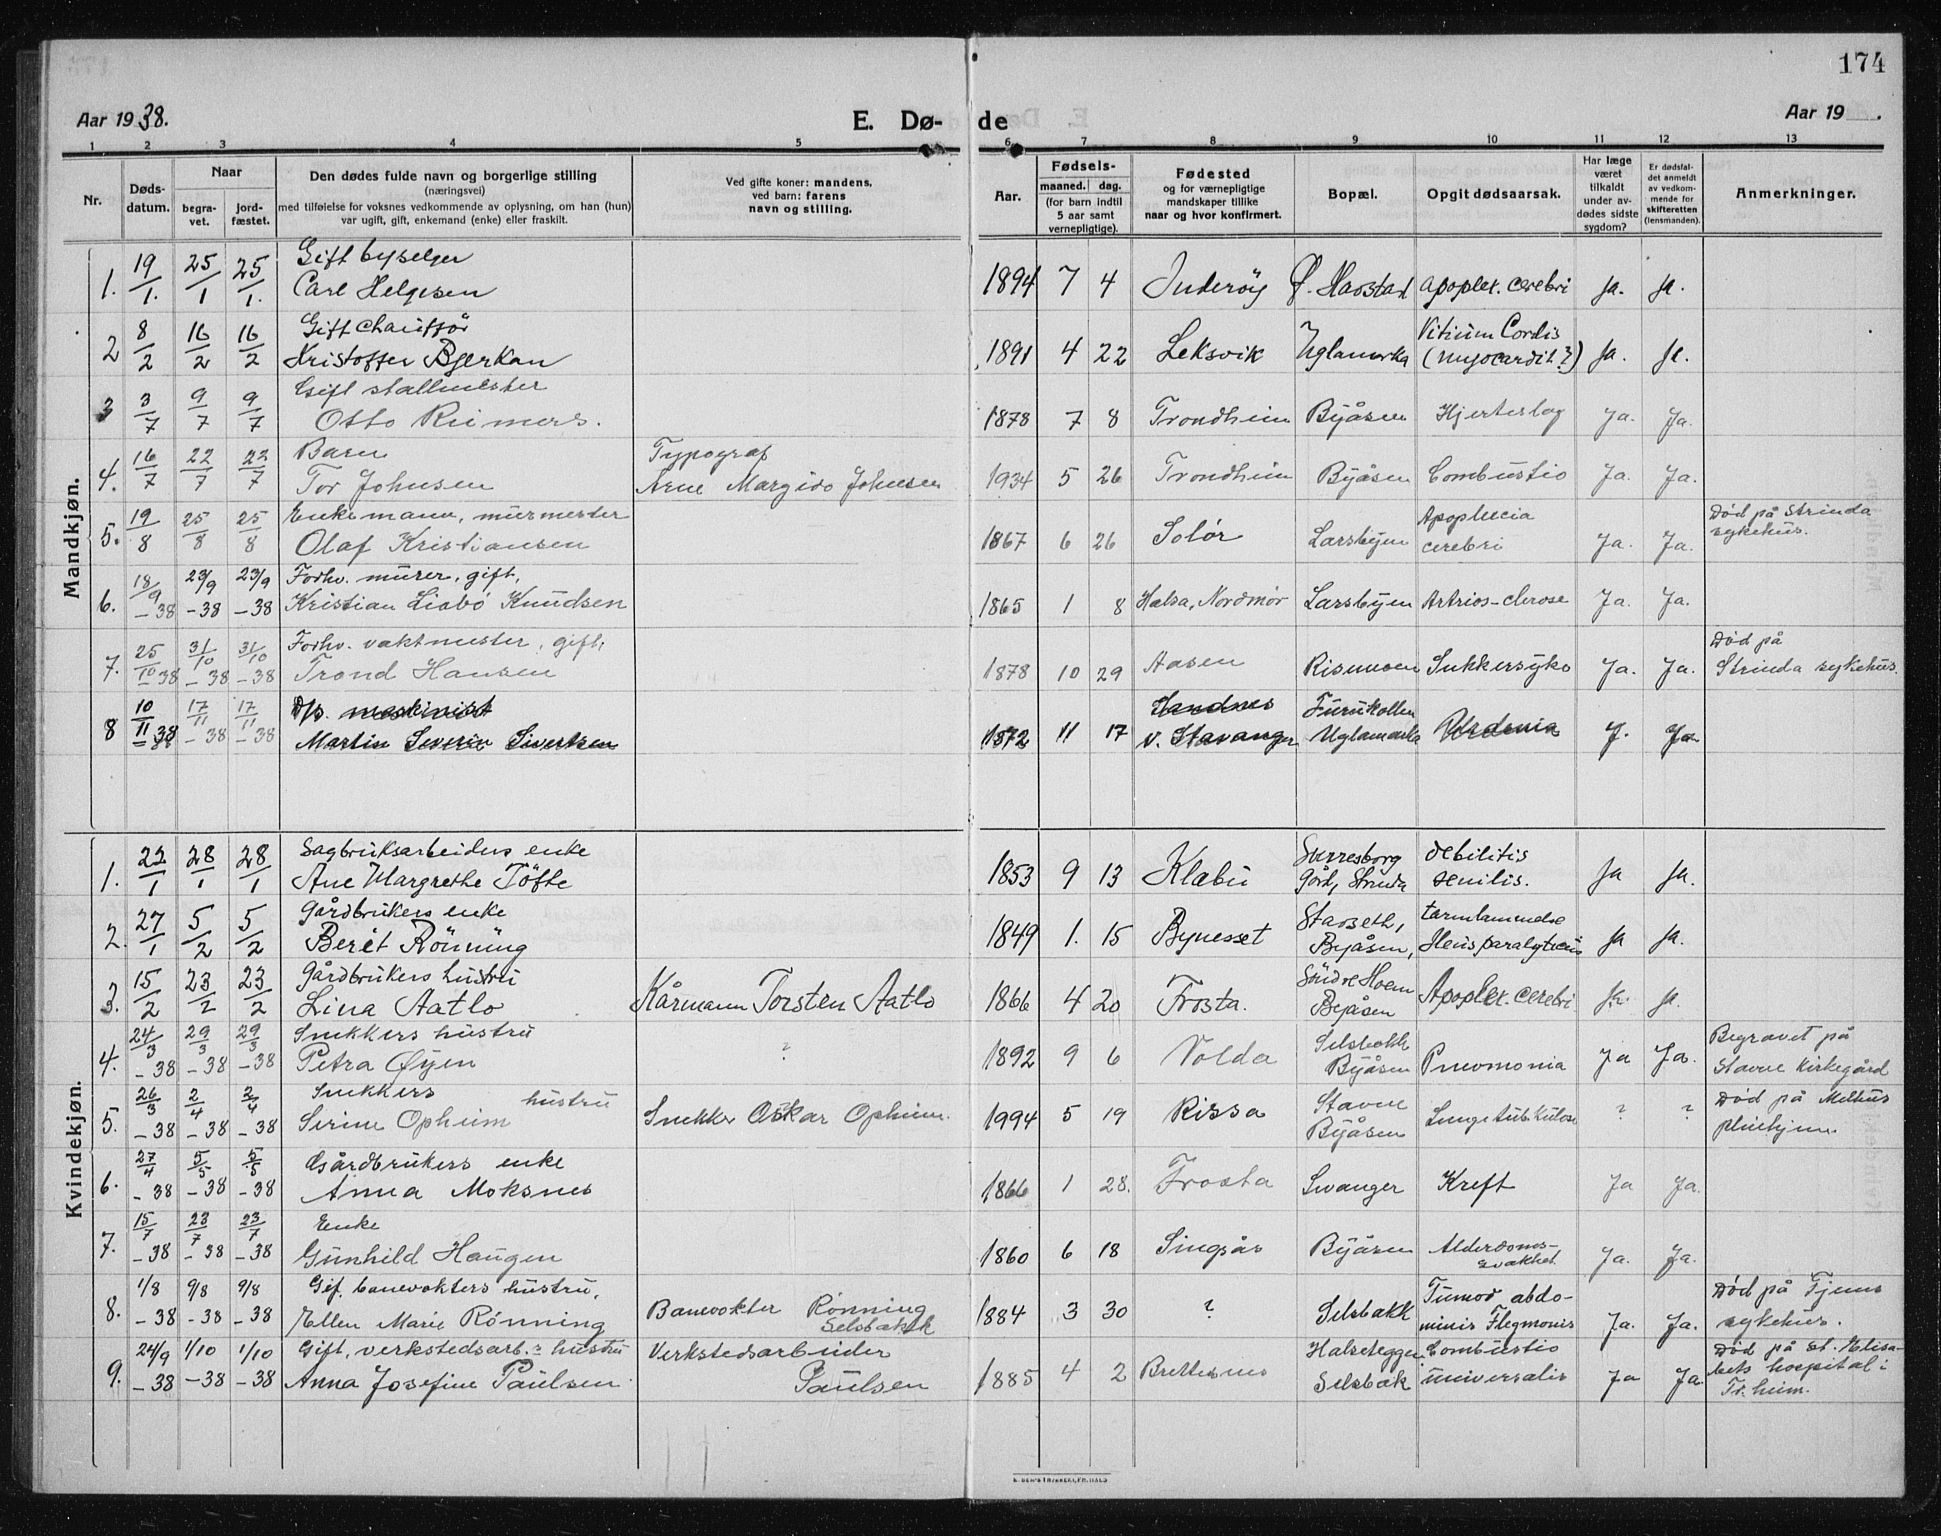 174
Aar 1938.
E. Dø- de
Aar 19 .
1 2 3 4 5 6 7 8 9 10 11 12 13
Nr.
Døds-datum.
Naar
begra-vet.
jord-fæstet.
Den dødes fulde navn og borgerlige stilling
(næringsvei)
med tilføielse for voksnes vedkommende av oplysning, om han (hun)
var ugift, gift, enkemand (enke) eller fraskilt.
Ved gifte koner: mandens,
ved barn: farens
navn og stilling.
Aar.
Fødsels-
maaned. dag.
(for barn indtil
5 aar samt
vernepligtige).
Fødested
og for værnepligtige
mandskaper tillike
naar og hvor konfirmert.
Bopæl.
Opgit dødsaarsak.
Har læge
været
tilkaldt
under av-
dødes sidste
sygdom?
Er dødsfal-
det anmeldt
av vedkom-
mende for
skifteretten
(lensmanden).
Anmerkninger.
Mandkjøn.
1. 19/1. 25/1 25/1. Gift byselger
Carl Helgesen 1894 7 4 Inderöy Ø. Havstad Apoplex. cerebri Ja. Ja.
2 8/2 16/2 16/2 Gift chauffør
Kristoffer Bjerkan 1891 4 22 Leksvik Uglamarka Vitium Cordis
(myocardit?) Ja. Ja.
3 3/7 9/7 9/7 Gift stallmester
Otto Reimers. 1878 7 8 Trondheim Byåsen Hjerteslag Ja. Ja.
4. 16/7 22/7 22/7 Barn Typograf
Tor Johnsen Arne Margido Johnsen 1934 5 26 Trondheim Byåsen Combustio Ja. Ja.
5. 19/8 25/8 25/8 Enkemann, murmester
Olaf Kristiansen 1867 6 26 Solør Larsbyen Apoplecia
cerebri Ja. Ja. Død på Strinda
sykehus.
6. 18/9 -38 23/9 -38 23/9 -38 Forhv. murer, gift,
Kristian Liabø Knudsen 1865 1 8 Halsa, Nordmør Larsbyen Artrios-clerose Ja. Ja.
7. 25/10 38 31/10 -38 31/10 -38 Forhv. vaktmester, gift,
Trond Hansen 1878 10 29 Aasen Rismoen Sukkersyke Ja. Ja. Død på
Strinda sykehus.
8 10/11 38 17/11 -38 17/11 -38 maskinist
Martin Severin Sivertsen 1872 11 17
v. Stavanger Furukollen
Uglamarka J. Ja
Kvindekjøn.
1. 22/1 28/1 28/1 Sagbruksarbeiders enke
Ane Margrethe Töfte 1853 9 13 Klæbu Sverresborg
Gård, Strinda debilitis
senilis. Ja Ja.
2. 27/1 5/2 5/2 Gårdbrukers enke
Berét Rönning 1849 1. 15 Bynesset Stavseth,
Byåsen, tarmlammelse
Ileus paralyticus Ja Ja.
3. 15/2 23/2 23/2 Gårdbrukers hustru
Lina Aatlo Kårmann Torsten Aatlo 1866 4 20 Frosta. Söndre Hoem
Byåsen Apoplex. cerebri Ja. Ja.
4. 24/3 -38 29/3 -38 29/3 -38 Snekkers hustru
Petra Øyen ? 1892 9 6 Volda Selsbakk
Byåsen Pneomonia Ja Ja. Begravet på
Stavne Kirkegård
5. 26/3 -38 2/4 -38 2/4 -38 Snekkers hustru
Sirine Opheim Snekker Oskar Opheim. 1994 5 19 Rissa Stavne
Byåsen Lungetuberkulose ? ? Død på Melhus
pleiehjem
6. 27/4 -38 5/5 -38 5/5 -38 Gårdbrukers enke
Anna Moksnes 1866 1 28. Frosta Svanger Kreft Ja Ja.
7. 15/7 -38 23/7 -38 23/7 -38 Enke
Gunhild Haugen 1860 6 18 Singsås Byåsen Alderdoms-
svakhet Ja. Ja.
8. 1/8 -38 9/8 -38 9/8 -38 Gif. banevokters hustru,
Ellen Marie Rønning Banevokter Rønning
Selsbakk 1884 3 30 ? Selsbakk Tumor abdo-
minis Flegmonis Ja. Ja. Død på
sykehus.
9. 24/9 -38 1/10 -38 1/10 -38 Gift, verkstedsarb. hustru Verkstedsarbeider
Anna Josefine Paulsen Paulsen 1885 4 2 Brettesnes
Selsbak Combustio
universalis Ja Ja. Død på St. Elisa-
bets hospital i
Tr.heim.